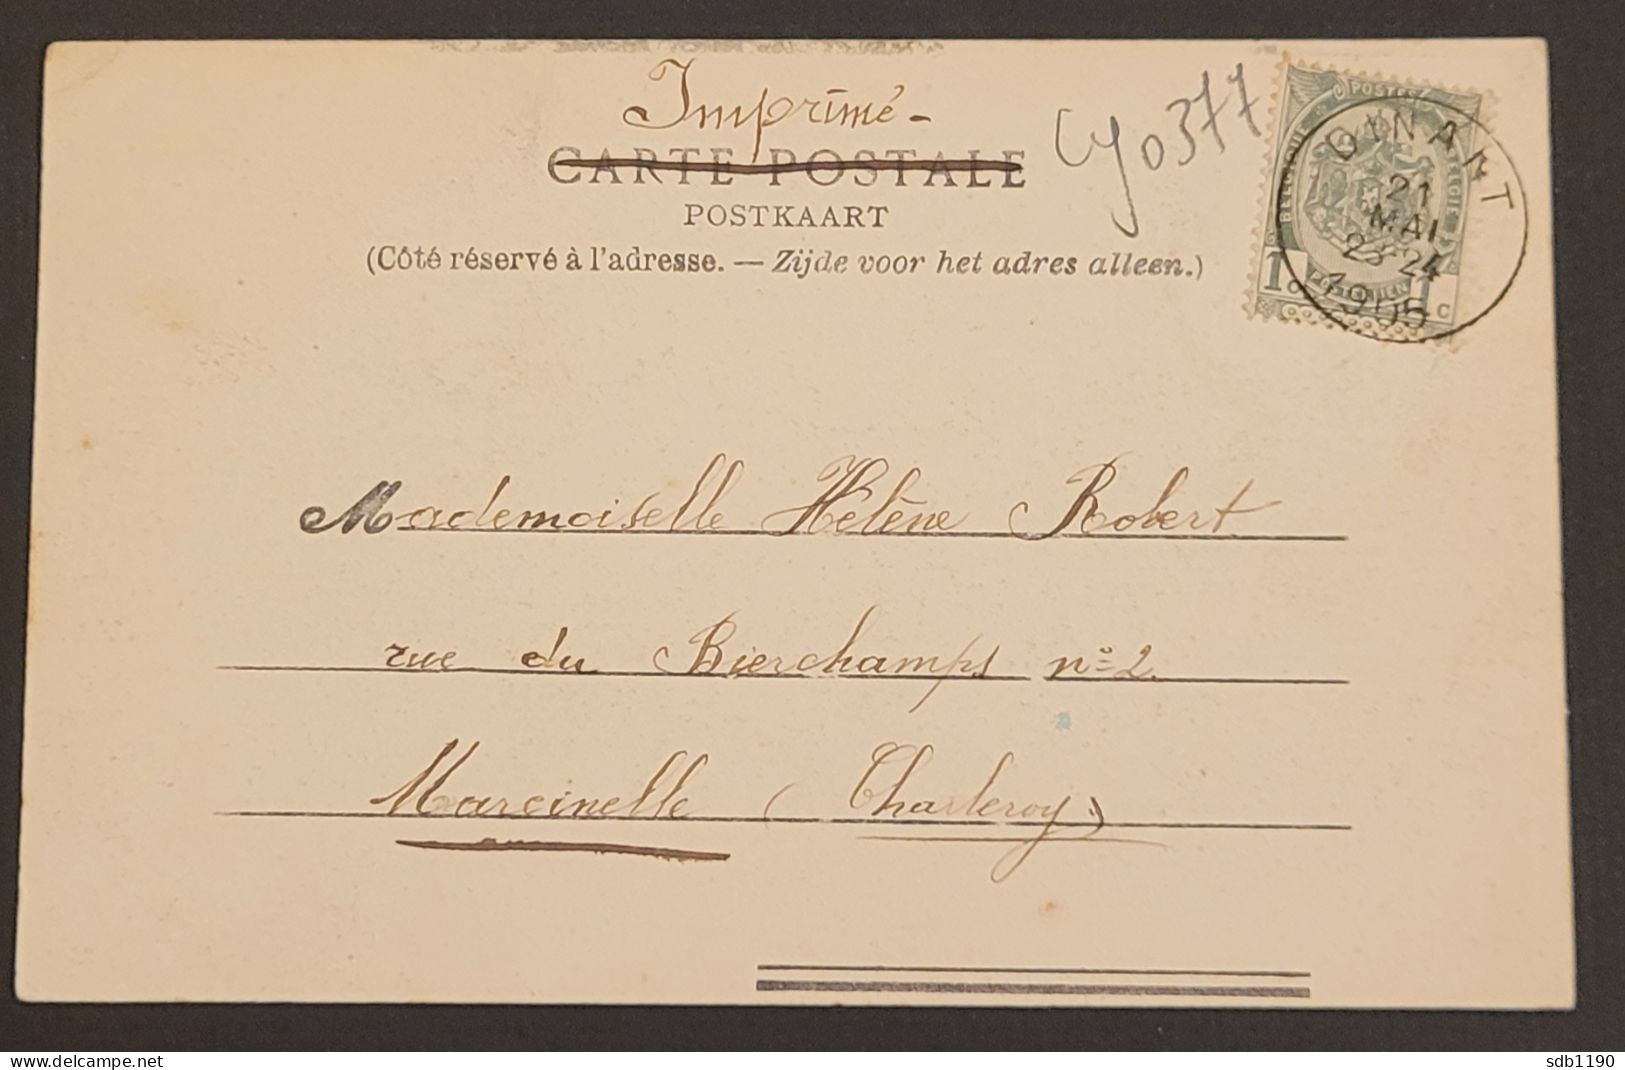 Imprimé -
CARTE POSTALE
POSTKAART
(Côté réservé à l'adresse. — Zijde voor het adres alleen.)
Cy0377
POSTES
BELGIQUE
BELGIE
1 C
1 C
DINANT
21
MAI
23-24
1905
Mademoiselle Hélène Robert
rue du Bierchamps nº 2.
Marcinelle (Charleroy)
www.delcampe.net
sdb1190